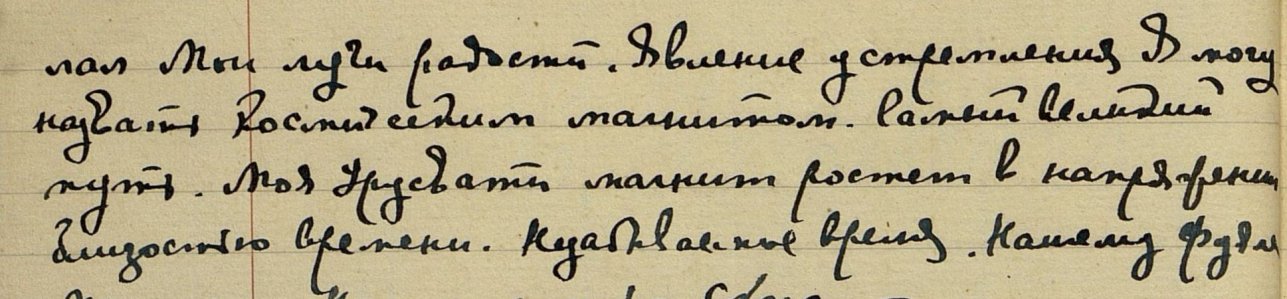 лал Мои лучи радости. Явление устремления Я могу
назвать космическим магнитом. Самый великий
путь. Моя Урусвати магнит ростет в напряжении
близостью времени. Незабываемые время. Нашему Фуяме